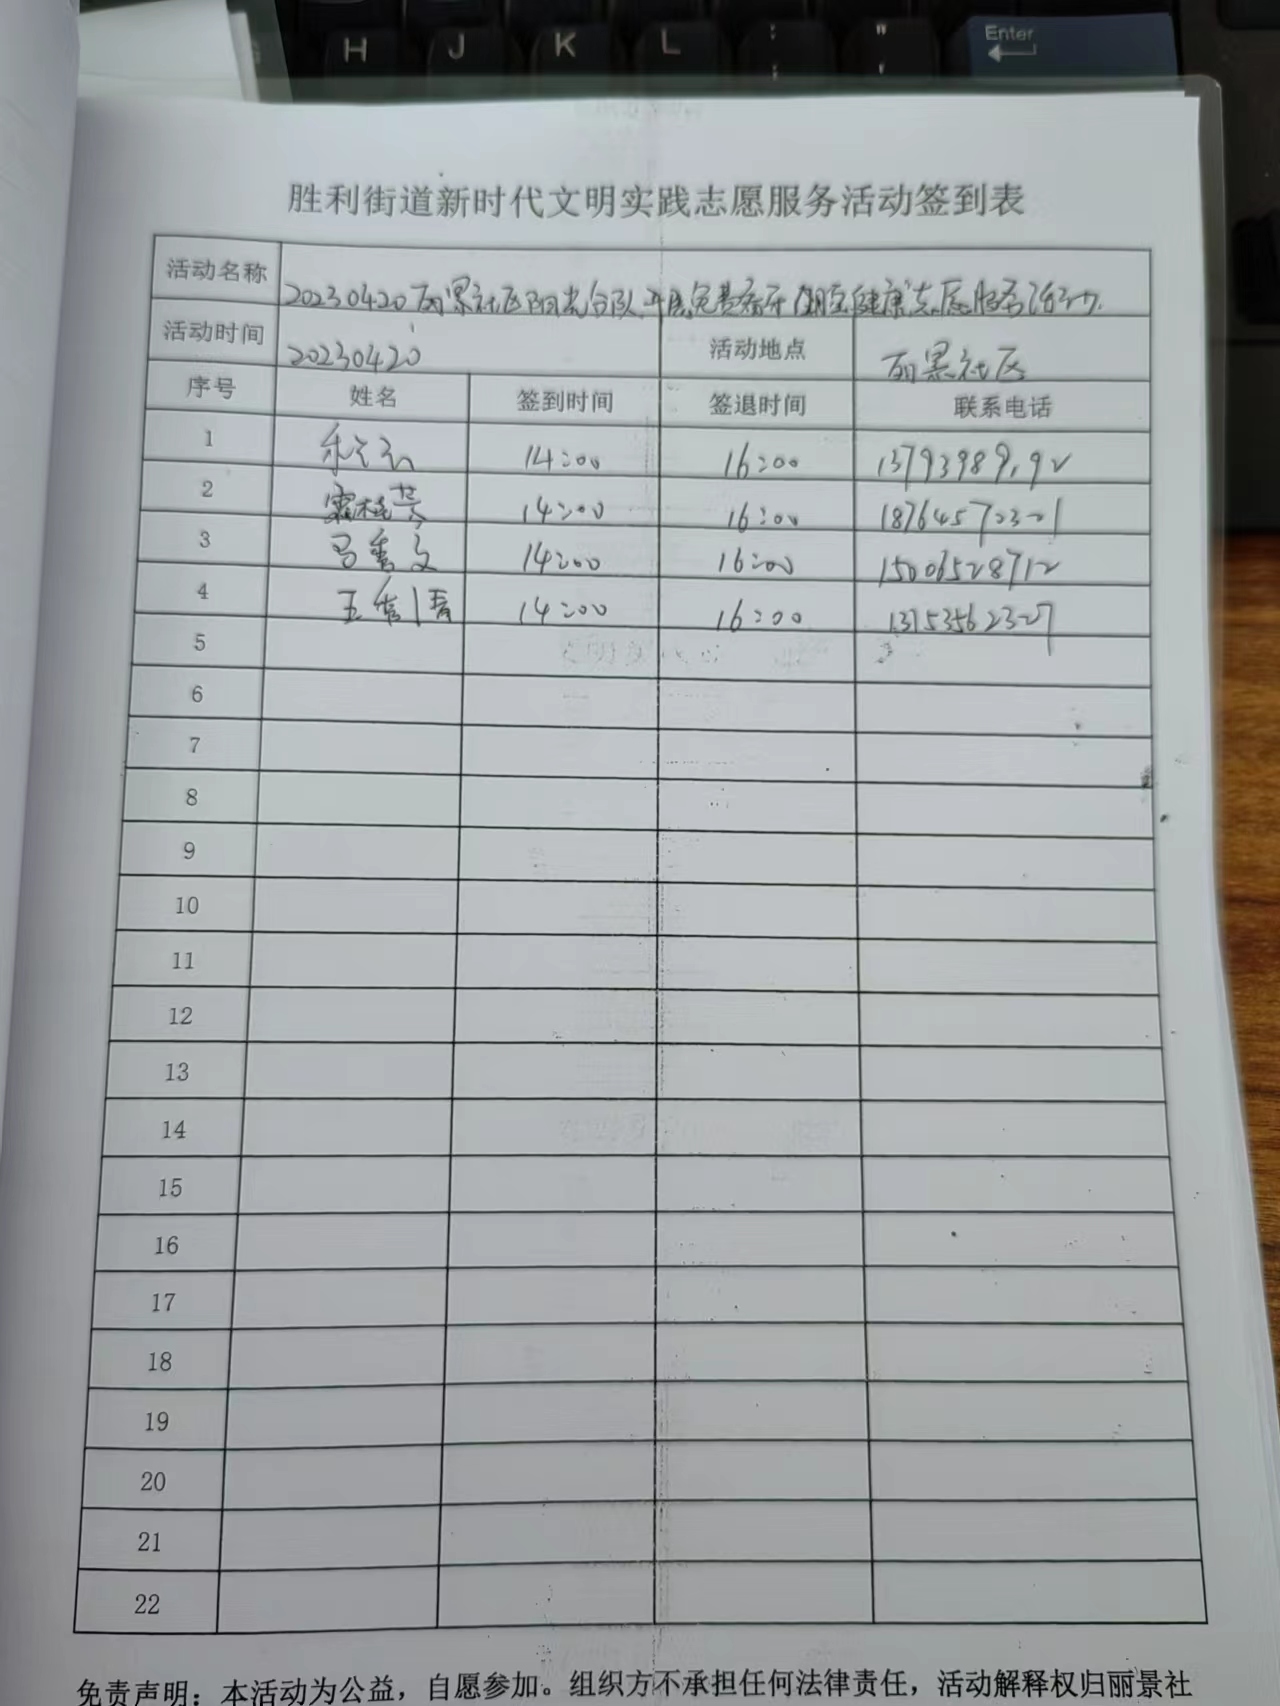 H J K L : ; " ' Enter
胜利街道新时代文明实践志愿服务活动签到表
活动名称 20230420丽景社区阳光台队开展免费 健康志愿服务活动
活动时间 20230420 活动地点 丽景社区
序号 姓名 签到时间 签退时间 联系电话
1 14:00 16:00
2 14:00 16:00
3 马秀文 14:00 16:00 15006528712
4 王秀清 14:00 16:00 13753562327
5
6
7
8
9
10
11
12
13
14
15
16
17
18
19
20
21
22
免责声明：本活动为公益，自愿参加。组织方不承担任何法律责任，活动解释权归丽景社